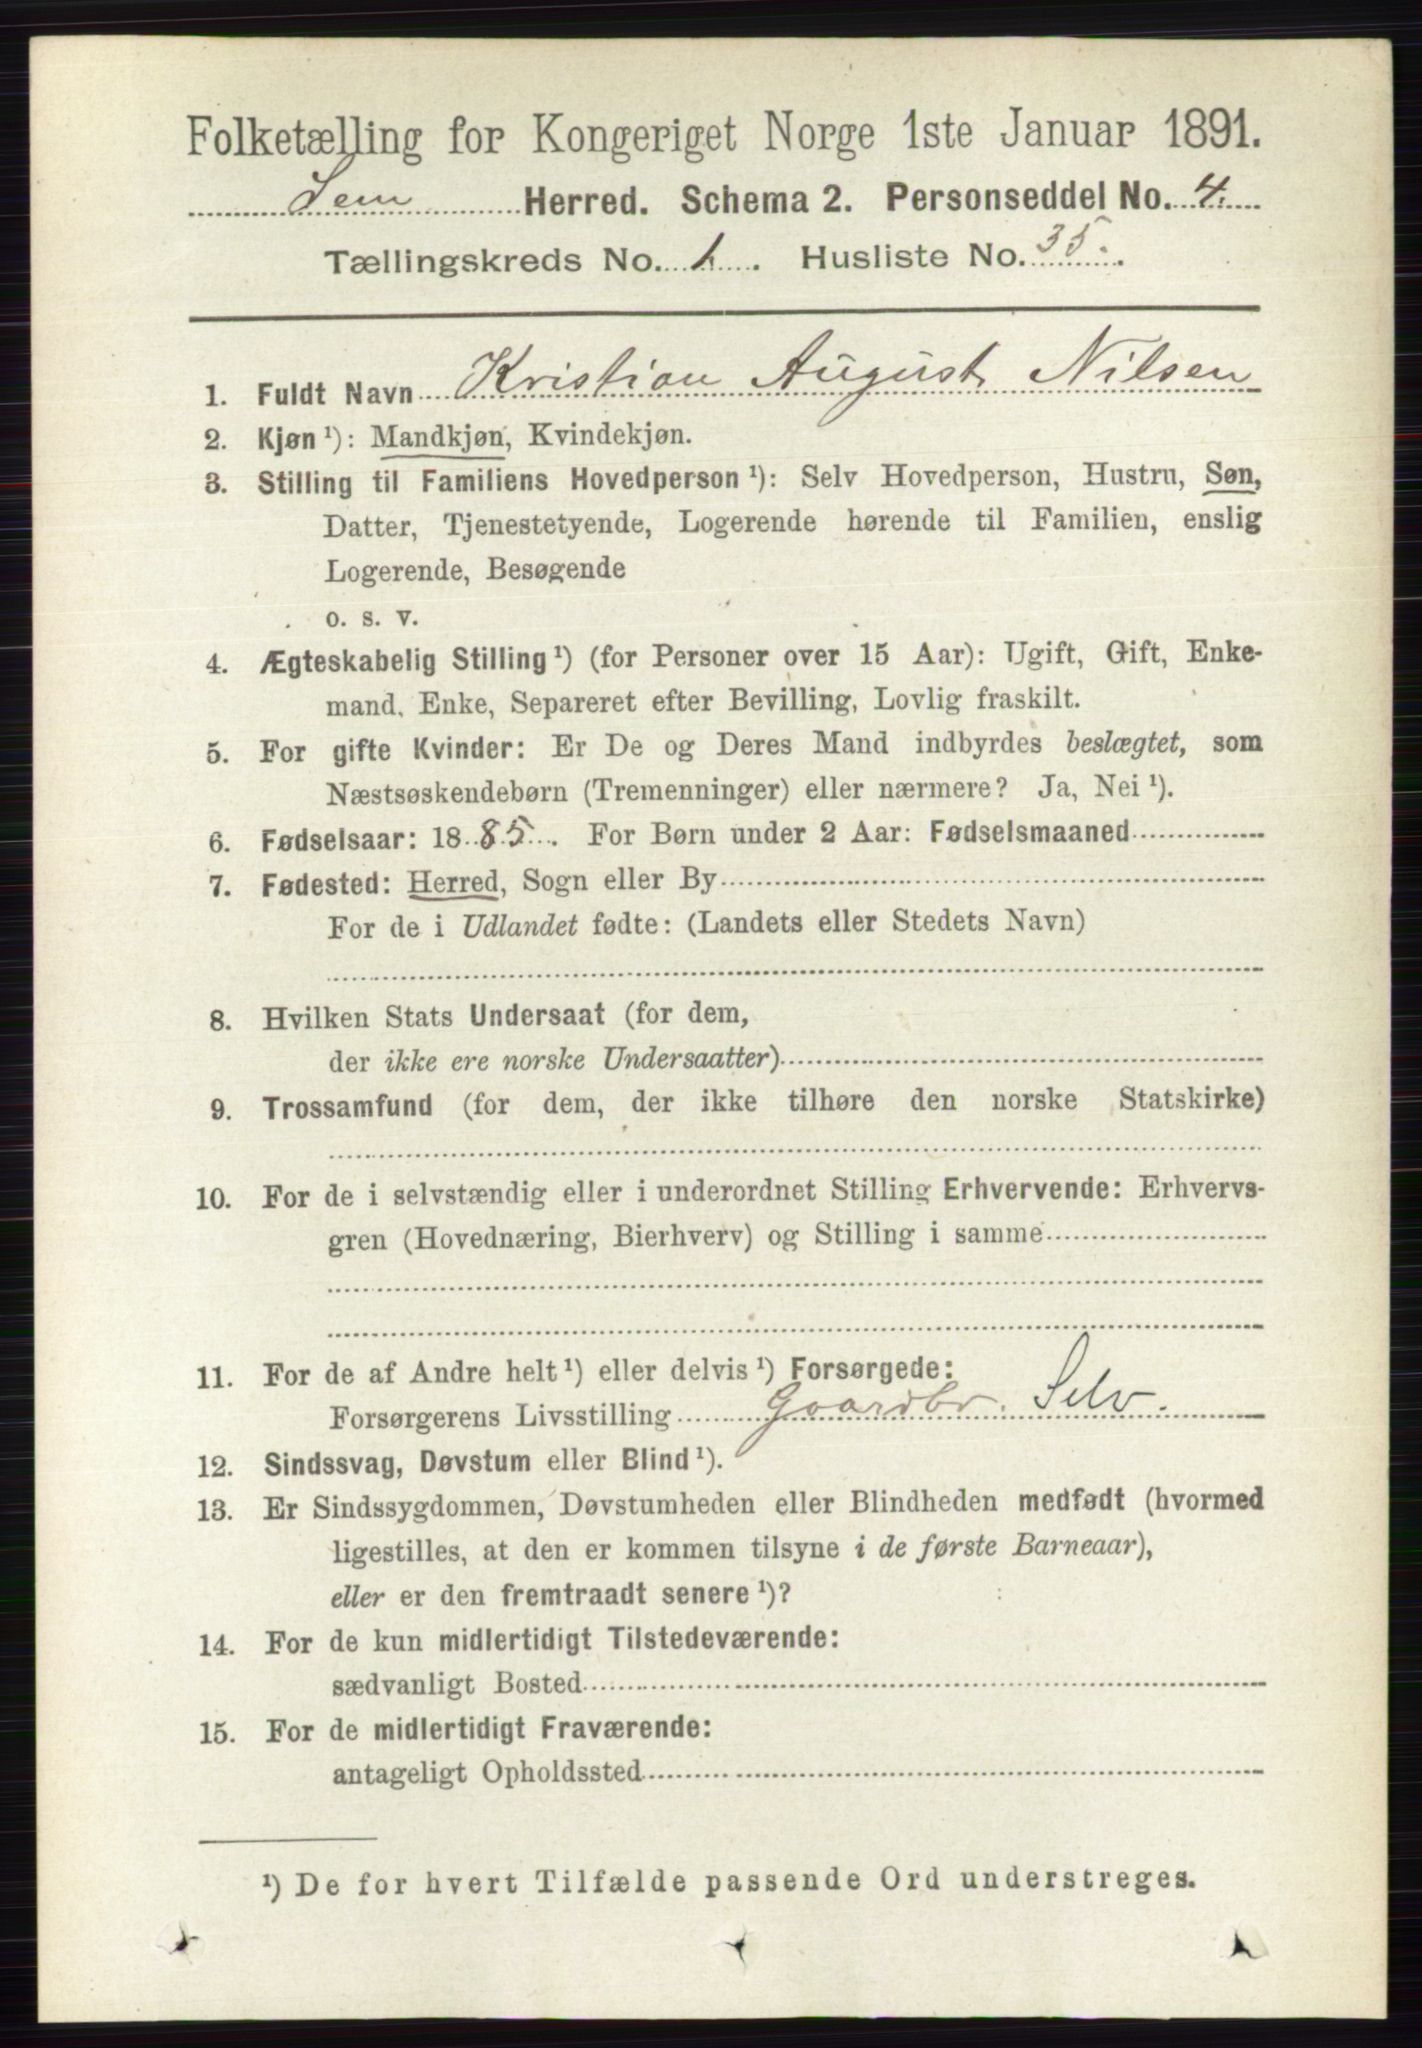 Folketælling for Kongeriget Norge 1ste Januar 1891.
Sem Herred. Schema 2. Personseddel No. 4.
Tællingskreds No. 1. Husliste No. 35.
1. Fuldt Navn Kristian August Nilsen
2. Kjøn ¹): Mandkjøn, Kvindekjøn.
3. Stilling til Familiens Hovedperson ¹): Selv Hovedperson, Hustru, Søn,
Datter, Tjenestetyende, Logerende hørende til Familien, enslig
Logerende, Besøgende
o. s. v.
4. Ægteskabelig Stilling ¹) (for Personer over 15 Aar): Ugift, Gift, Enke-
mand, Enke, Separeret efter Bevilling, Lovlig fraskilt.
5. For gifte Kvinder: Er De og Deres Mand indbyrdes beslægtet, som
Næstsøskendebørn (Tremenninger) eller nærmere? Ja, Nei ¹).
6. Fødselsaar: 1885. For Børn under 2 Aar: Fødselsmaaned
7. Fødested: Herred, Sogn eller By
For de i Udlandet fødte: (Landets eller Stedets Navn)
8. Hvilken Stats Undersaat (for dem,
der ikke ere norske Undersaatter)
9. Trossamfund (for dem, der ikke tilhøre den norske Statskirke)
10. For de i selvstændig eller i underordnet Stilling Erhvervende: Erhvervs-
gren (Hovednæring, Bierhverv) og Stilling i samme
11. For de af Andre helt ¹) eller delvis ¹) Forsørgede:
Forsørgerens Livsstilling Gaardbr. Selv.
12. Sindssvag, Døvstum eller Blind ¹).
13. Er Sindssygdommen, Døvstumheden eller Blindheden medfødt (hvormed
ligestilles, at den er kommen tilsyne i de første Barneaar),
eller er den fremtraadt senere ¹)?
14. For de kun midlertidigt Tilstedeværende:
sædvanligt Bosted
15. For de midlertidigt Fraværende:
antageligt Opholdssted
¹) De for hvert Tilfælde passende Ord understreges.